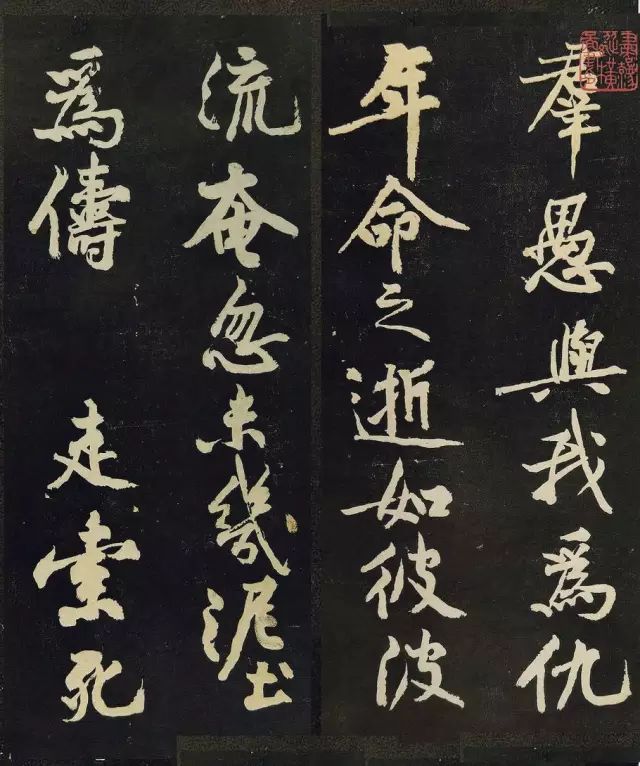 羣愚與我為仇
年命之逝如彼波
流奄忽未幾泥土
為儔 走索死